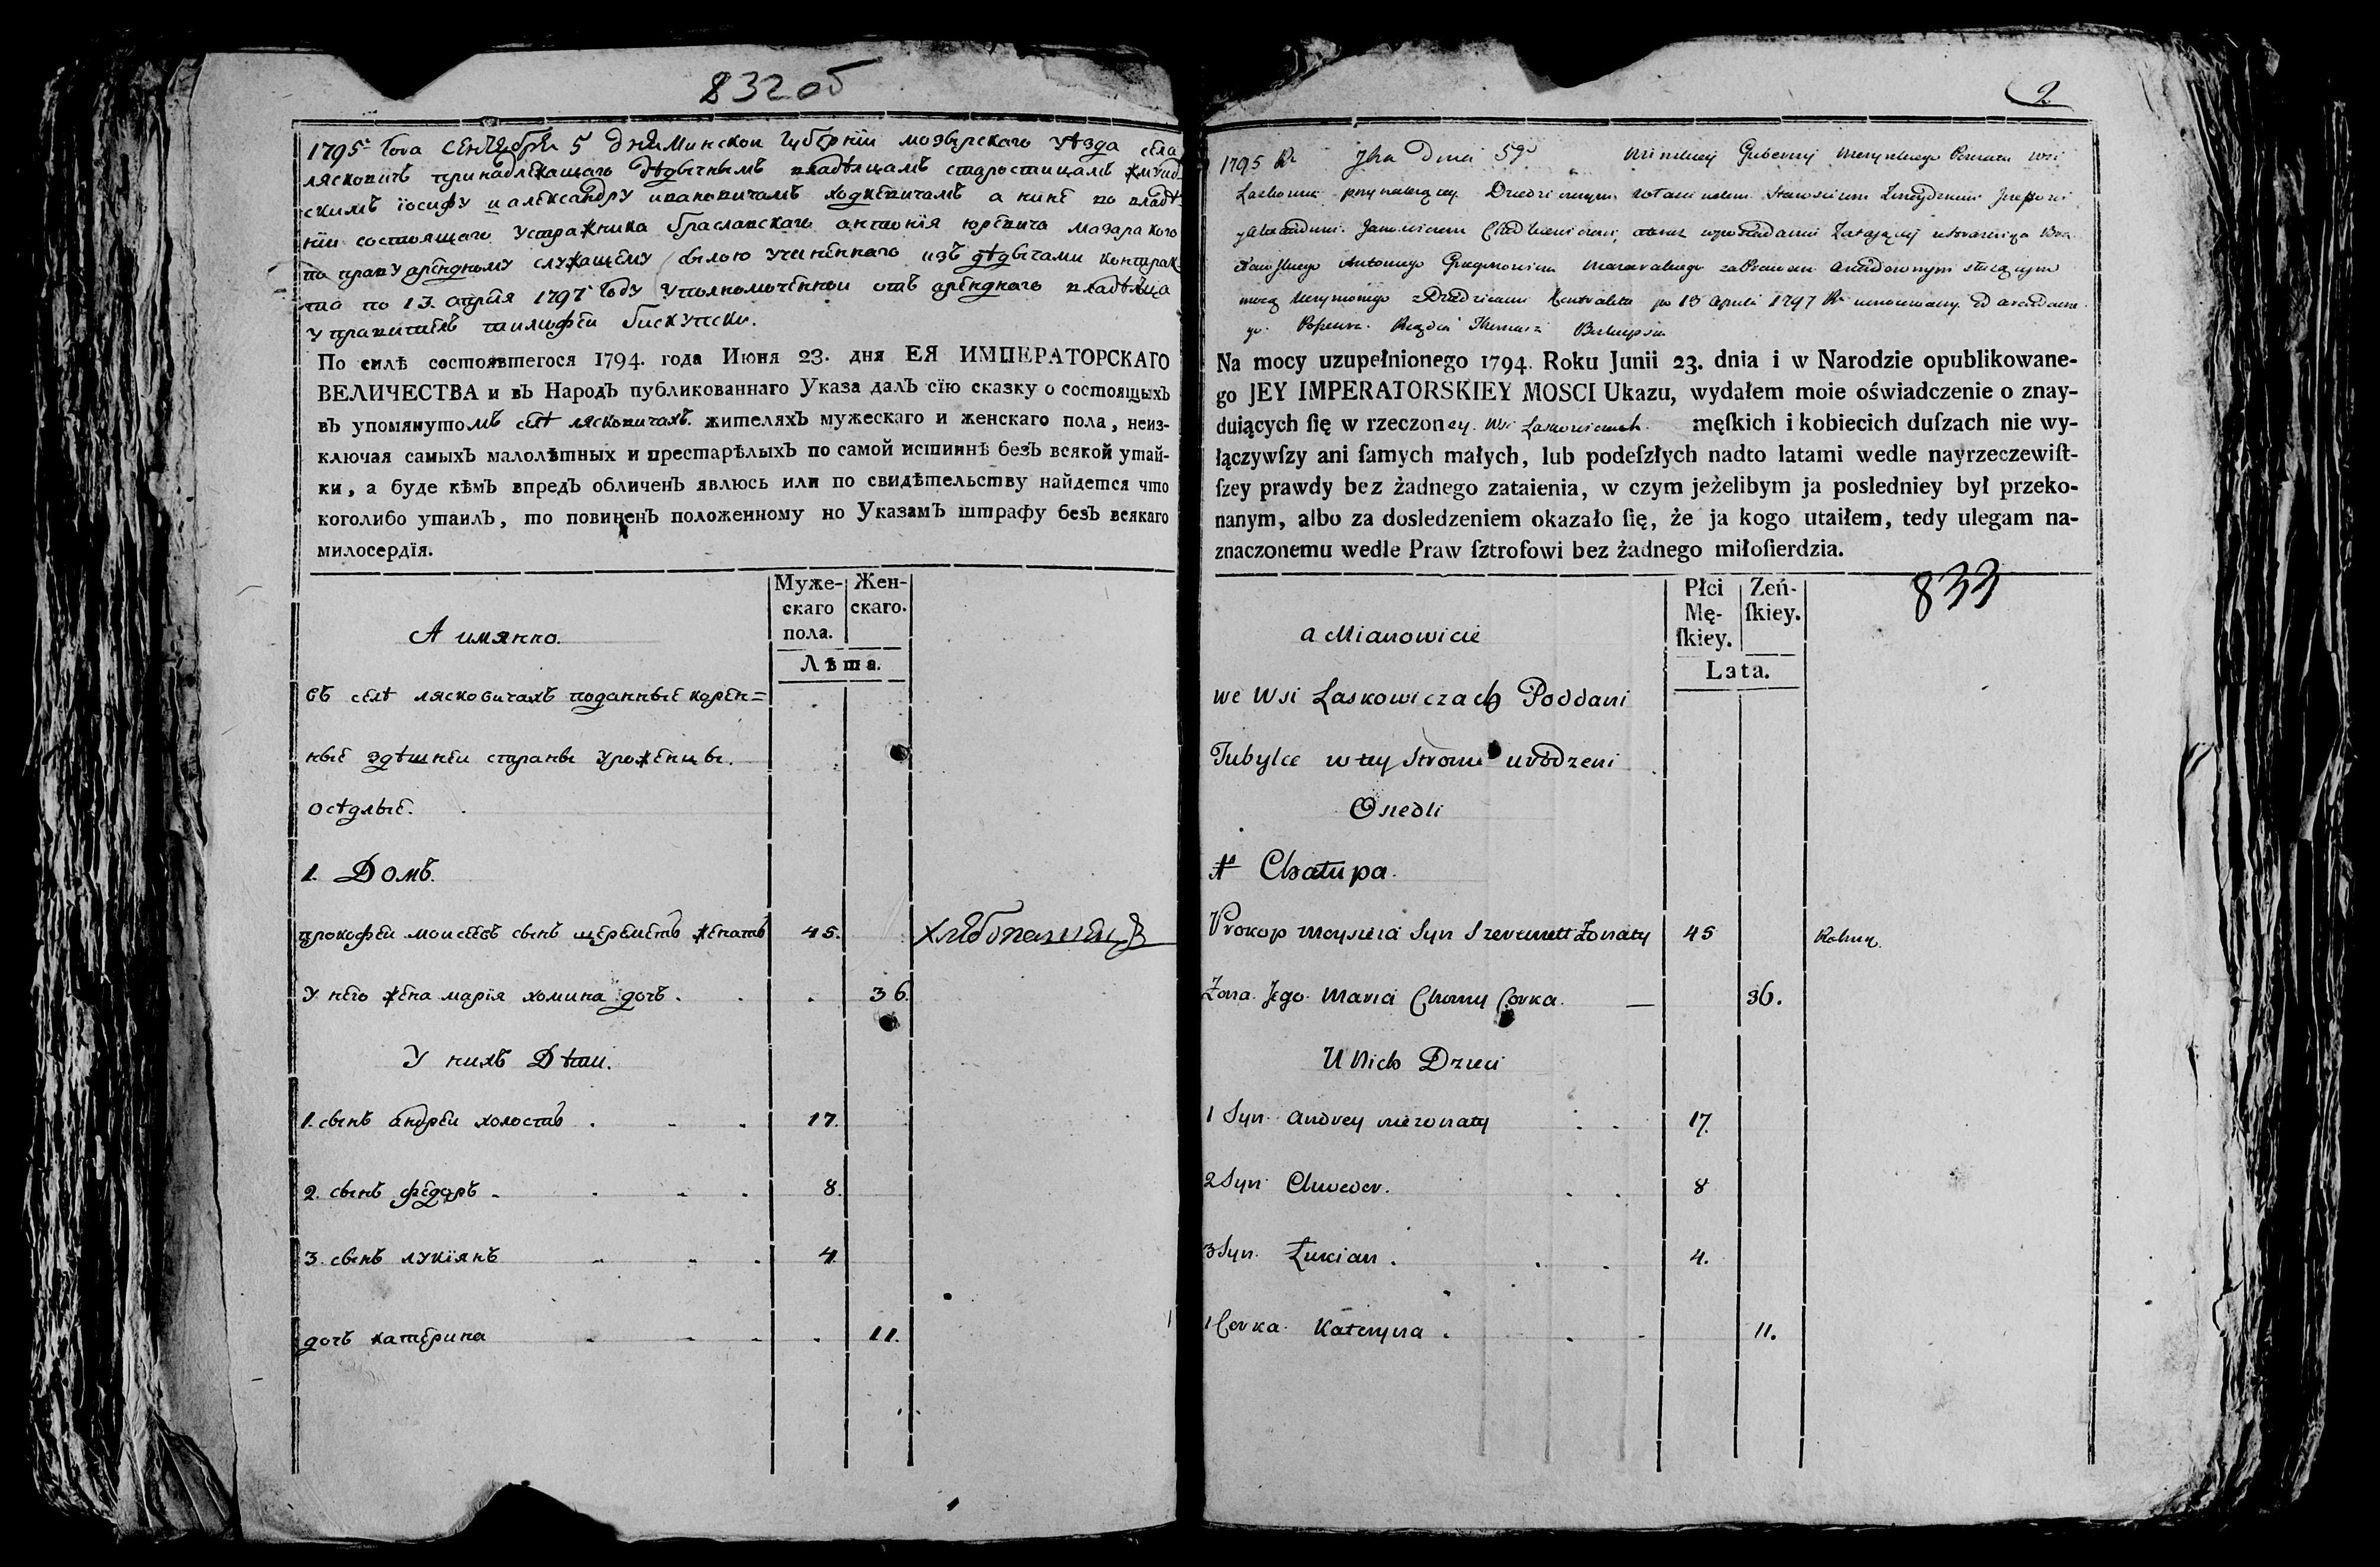 832 об
1795 года сентября 5 дня Минской губернии мозырскаго уѣзда села
лясковичъ принадлежащаго дѣдычнымъ владѣлцамъ старостицамъ жмуид-
скимъ іосифу и александру ивановичамъ ходкевичамъ а нинѣ во владѣ-
ніи состоящаго браславскаго антонія юревича
по праву арендному служащему силою учиненнаго изъ дѣдычами контрак-
та по 13 апреля 1797 году уполномоченной отъ аренднаго владѣлца
управитель бискупски.
По силѣ состоявшегося 1794. года Июня 23. дня ЕЯ ИМПЕРАТОРСКАГО
ВЕЛИЧЕСТВА и въ Народъ публикованнаго Указа далъ сїю сказку о состоящыхъ
въ упомянутомъ селѣ лясковичахъ жителяхъ мужескаго и женскаго пола, неиз-
ключая самыхъ малолѣтныхъ и престарѣлыхъ по самой истиннѣ безъ всякой утай-
ки, а буде кѣмъ впредъ обличенъ явлюсь или по свидѣтельству найдется что
коголибо утаилъ, то повиненъ положенному по Указамъ штрафу безъ всякаго
милосердїя.
Муже-скаго пола. Жен-скаго.
А имянно.
Лѣта.
въ селѣ лясковичахъ поданные корен=
ные здѣшнеи страны уроженцы.
осѣдлые.
1. Домъ.
прокофеи моисеевъ сынъ шереметъ женатъ 45. хлебопашецъ
у него жена марія хомина дочъ. 36.
У нихъ Дѣти.
1. сынъ андреи холостъ 17.
2. сынъ федоръ 8.
3. сынъ лукіянъ 4.
дочъ катерина 11.
2
1795 Ru 7bra Dnia 5go Minskiey Gubernij Mozyrskiego Powiatu wsi
przynalezącey Dziedzicznym Staroscicom
Janowiczom Chodkiewiczom,
Antoniego arendownym służącym
mocą z Dziedzicami Kontraktu po 13 Aprili 1797 Ru
Na mocy uzupełnionego 1794. Roku Junii 23. dnia i w Narodzie opublikowane-
go JEY IMPERATORSKIEY MOSCI Ukazu, wydałem moie oświadczenie o znay-
duiących ſię w rzeczoney. Wsi Laskowiczach. męſkich i kobiecich duſzach nie wy-
łączywſzy ani ſamych małych, lub podeſzłych nadto latami wedle nayrzeczewiſt-
ſzey prawdy bez żadnego zataienia, w czym jeżelibym ja posledniey był przeko-
nanym, albo za dosledzeniem okazało ſię, że ja kogo utaiłem, tedy ulegam na-
znaczonemu wedle Praw ſztrofowi bez żadnego miłoſierdzia.
Płci Mę-ſkiey. Zeń-ſkiey. 833
a Mianowicie
Lata.
we Wsi Laskowiczach Poddani
Tubylce w tey Stronie urodzeni
Osiedli
1 Chałupa.
Prokop Moysieia Syn Szeremett Żonaty 45 Rolnik.
Żona Jego Maria Chomy Corka. 36.
U Nich Dzieci
1 Syn Andrey nieżonaty 17.
2 Syn Chwedor. 8
3 Syn. Łukian. 4.
1 Corka Kateryna. 11.